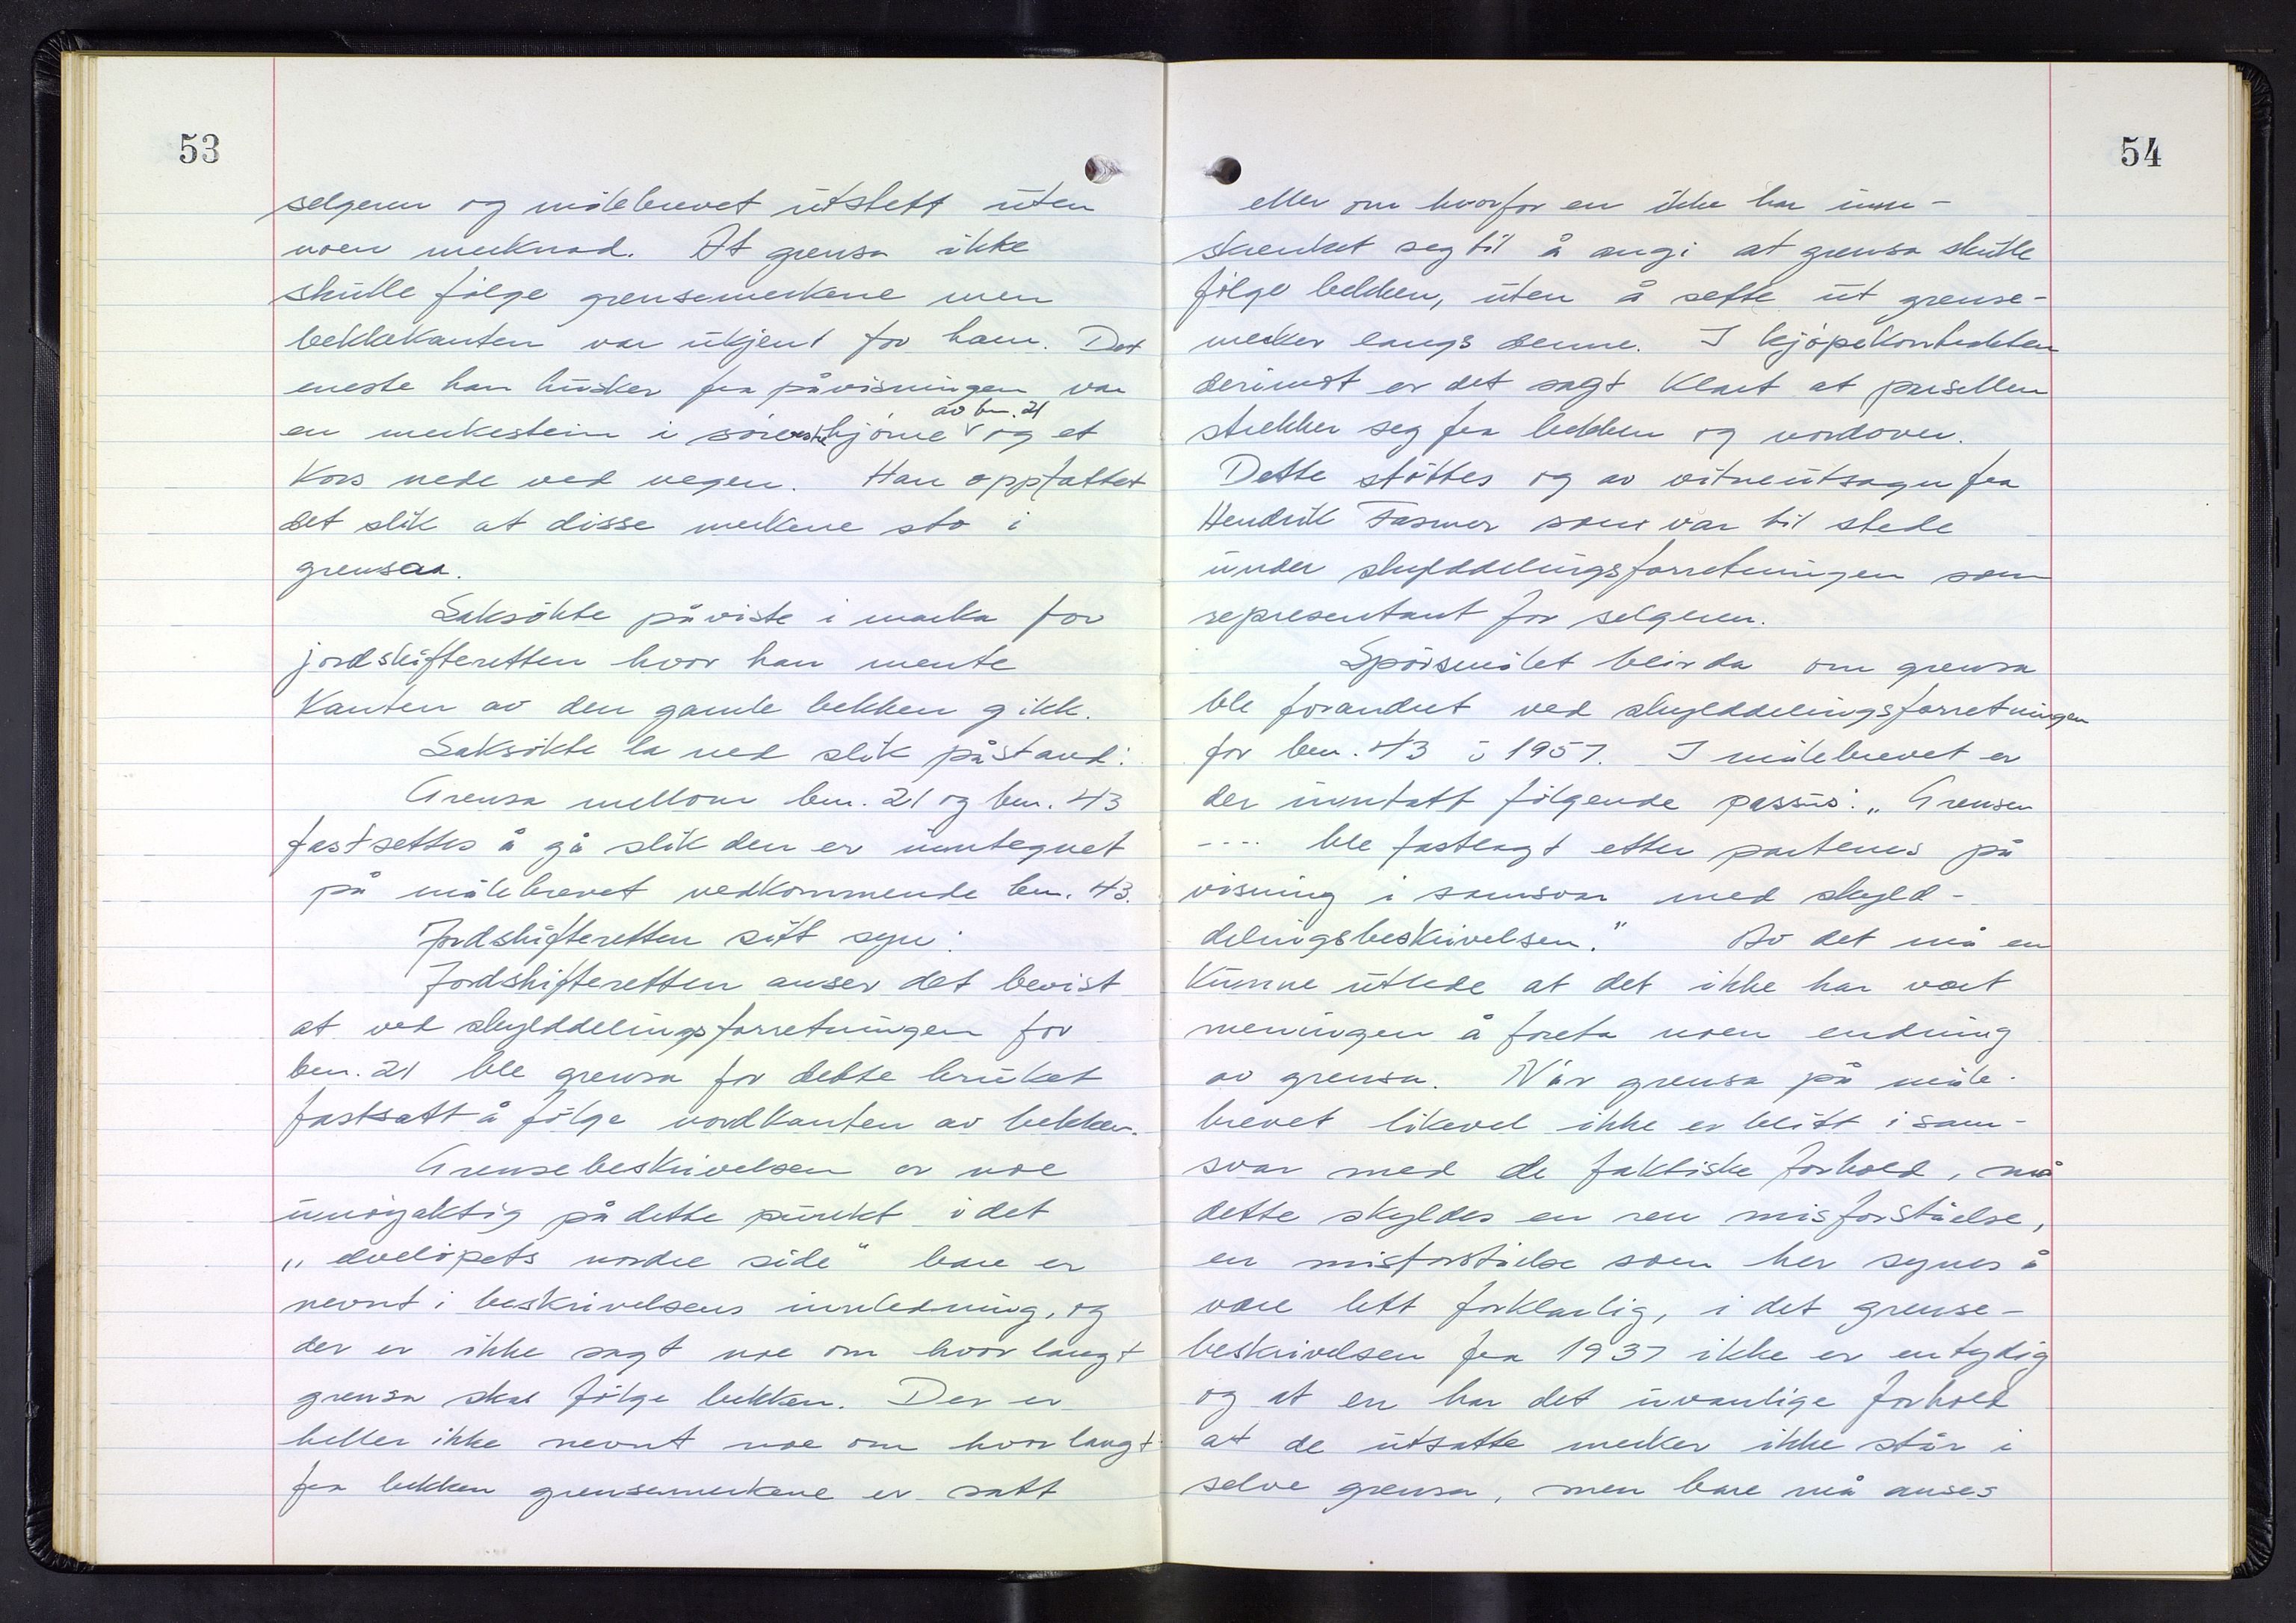 53
selgeren og målebrevet utstett uten
noen merknad. At grensa ikke
skulle følge grensemerkene men
bekkekanten var ukjent for ham. Det
eneste han husker fra påvisningen var
av bnr. 21
en merkestein i sørøstre hjørne og et
kors nede ved vegen. Han oppfattet
det slik at disse merkene sto i
grensaa.
Saksøkte påviste i marka for
jordskifteretten hvor han mente
kanten av den gamle bekken gikk.
Saksøkte la ned slik påstand:
Grensa mellom bnr. 21 og bnr. 43
fastsettes å gå slik den er inntegnet
på målebrevet vedkommende bnr. 43.
Jordskifteretten sitt syn:
Jordskifteretten anser det bevist
at ved skylddelingsforretningen for
bnr. 21 ble grensa for dette bruket
fastsatt å følge nordkanten av bekken.
Grensebeskrivelsen er noe
unøyaktig på dette punkt idet
„elveløpets nordre side" bare er
nevnt i beskrivelsens innledning, og
der er ikke sagt noe om hvor langt
grensa skal følge bekken. Der er
heller ikke nevnt noe om hvor langt
fra bekken grensemerkene er satt
54
eller om hvorfor en ikke har inn-
skrenket seg til å angi at grensa skulle
følge bekken, uten å sette ut grense-
merker langs denne. I kjøpekontrakten
derimot er det sagt klart at parsellen
strekker seg fra bekken og nordover.
Dette støttes og av vitneutsagn fra
Hendrik Fasmer som var til stede
under skylddelingsforretningen som
representant for selgeren.
Spørsmålet blir da om grensa
ble forandret ved skylddelingsforretningen
for bnr. 43 i 1957. I målebrevet er
der inntatt følgende passus: „Grensen
.... ble fastlagt etter partenes på
visning i samsvar med skyld-
delingsbeskrivelsen." Av det må en
kunne utlede at det ikke har vært
meningen å foreta noen endring
av grensa. Når grensa på måle-
brevet likevel ikke er blitt i sam-
svar med de faktiske forhold, må
dette skyldes en ren misforståelse,
en misforståelse som her synes å
være lett forklarlig, i det grense-
beskrivelsen fra 1937 ikke er entydig
og at en har det uvanlige forhold
at de utsatte merker ikke står i
selve grensa, men bare må anses